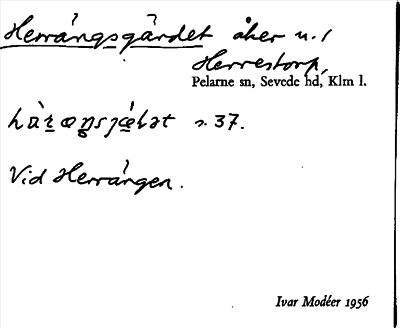 Herrängsgärdet åker u. /
Herrestorp,
Pelarne sn, Sevede hd, Klm l.
s. 37.
Vid Herrängen.
Ivar Modéer 1956